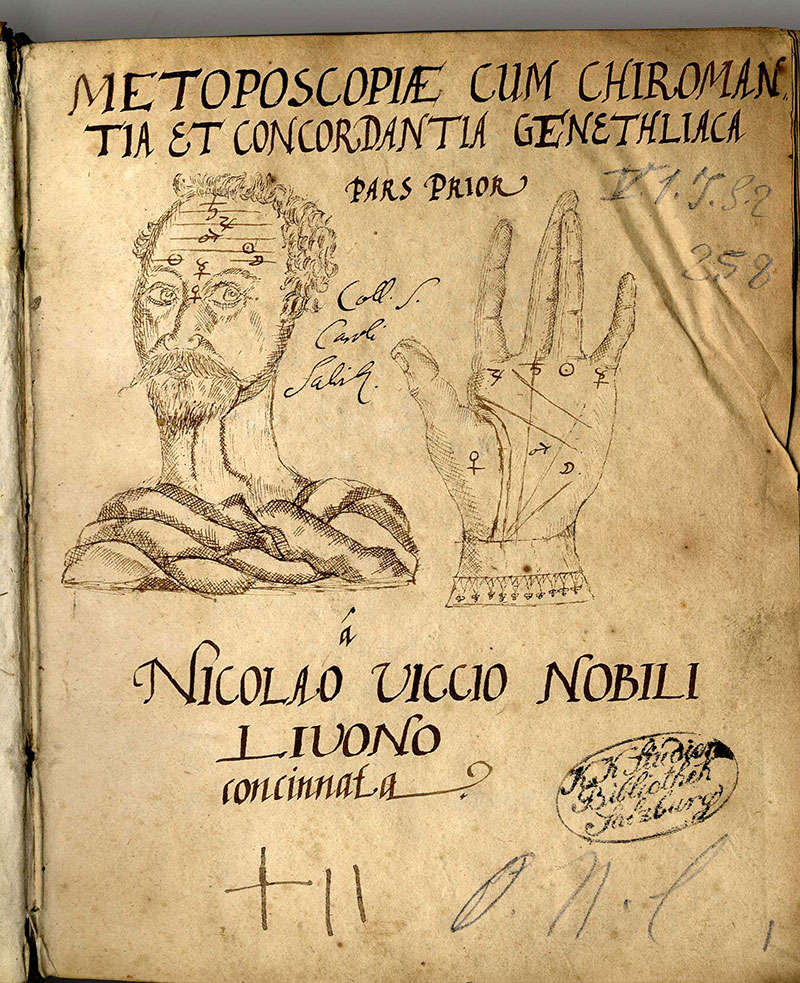 METOPOSCOPIÆ CUM CHIROMAN,
TIA ET CONCORDANTIA GENETHLIACA
PARS PRIOR
V.1.J.S.2
258
♄
♃
♂
☉ ☿ ☽
♀
Coll. S.
Caroli
♃ ♄ ☉ ☿
♀ ♂ ☽
á
NICOLAO VICCIO NOBILI
LIVONO
concinnata
K K Studien
Bibliothek
Salzburg
1